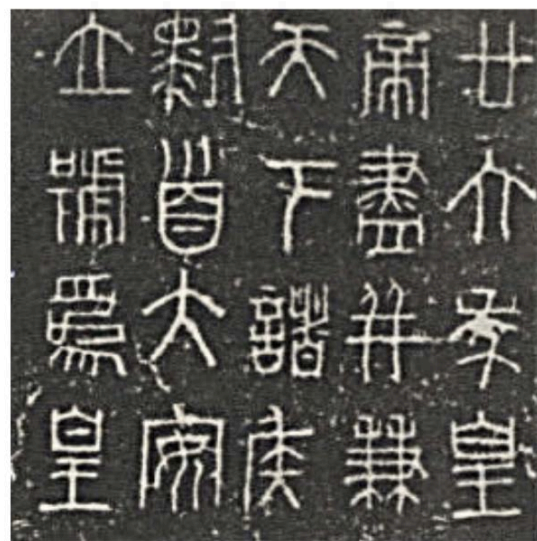 廿六年皇
帝盡并兼
天下諸侯
黔首大安
立號為皇